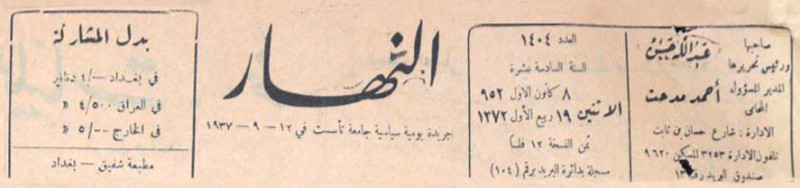 صاحبها
ورئيس تحريرها
عبدالله حسن
المدير المسؤول
أحمد مدحت
المحامي
الادارة : شارع حسان بن ثابت
تلفون الادارة ٣٢٥٣ للسكن ٩٦٢٠
صندوق البريد رقم
العدد ١٤٠٤
السنة السادسة عشرة
الاثنين
٨ كانون الاول ٩٥٢
١٩ ربيع الأول ١٣٧٢
ثمن النسخة ١٢ فلسا
مسجلة بدائرة البريد برقم (١٠٤)
النهار
جريدة يومية سياسية جامعة تأسست في ١٢ - ٩ - ١٩٣٧
بدل المشاركة
في بغداد ٤/- دنانير
في العراق ٤/٥٠٠ »
في الخارج ٥/-- »
مطبعة شفيق - بغداد